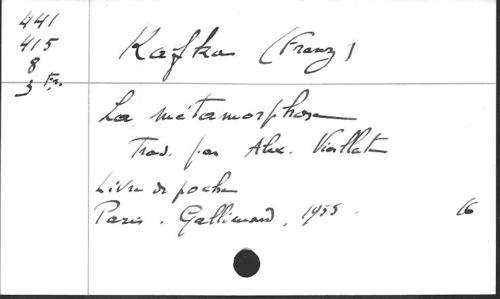 441
415
8
3 Fr.
Kafka (Franz)
La métamorphose
Trad. par Alex. Vialatte
Livre de poche
Paris. Gallimard, 1955. 16